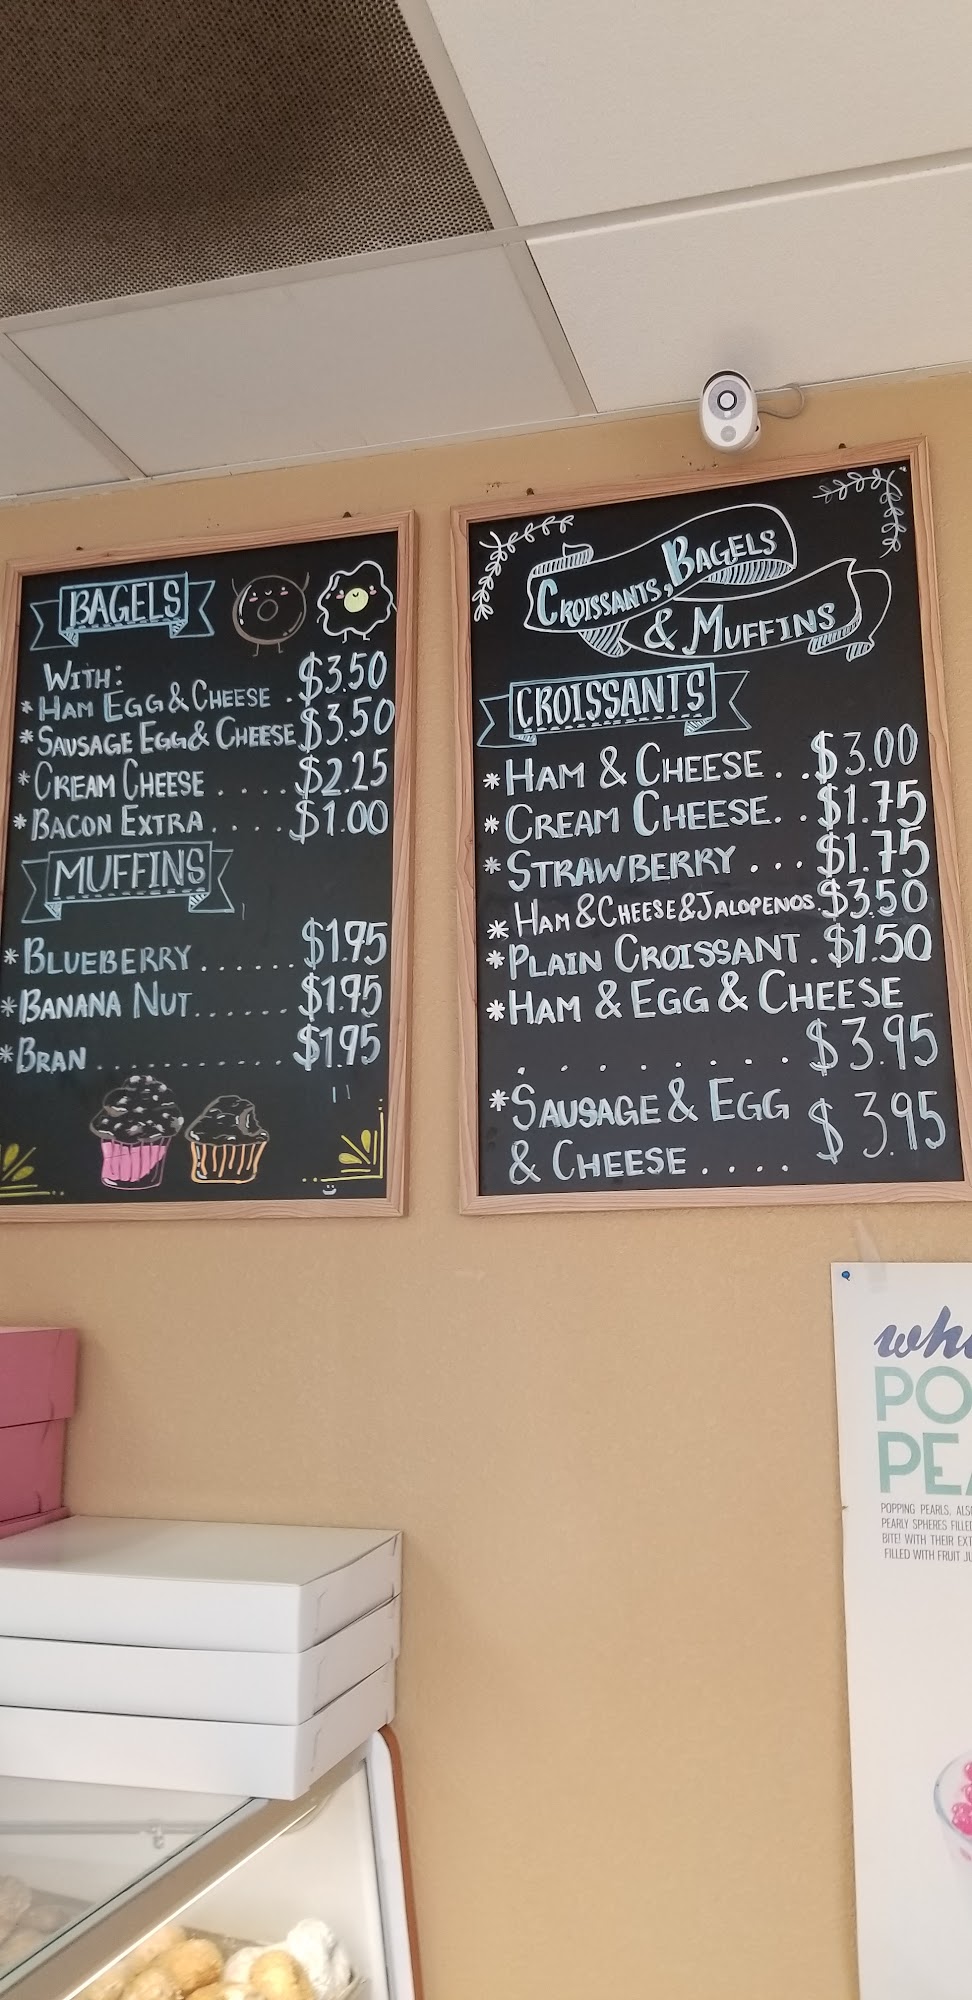 BAGELS
WITH:
* HAM EGG & CHEESE . $3.50
* SAUSAGE EGG & CHEESE $3.50
* CREAM CHEESE .... $2.25
* BACON EXTRA .... $1.00
MUFFINS
* BLUEBERRY ...... $1.95
* BANANA NUT ...... $1.95
* BRAN .......... $1.95
CROISSANTS, BAGELS
& MUFFINS
CROISSANTS
* HAM & CHEESE .. $3.00
* CREAM CHEESE .. $1.75
* STRAWBERRY ... $1.75
* HAM & CHEESE & JALOPENOS . $3.50
* PLAIN CROISSANT . $1.50
* HAM & EGG & CHEESE
......... $3.95
* SAUSAGE & EGG
& CHEESE .... $3.95
PO
PE
POPPING PEARLS, ALS
PEARLY SPHERES FILLE
BITE! WITH THEIR EXT
FILLED WITH FRUIT JU